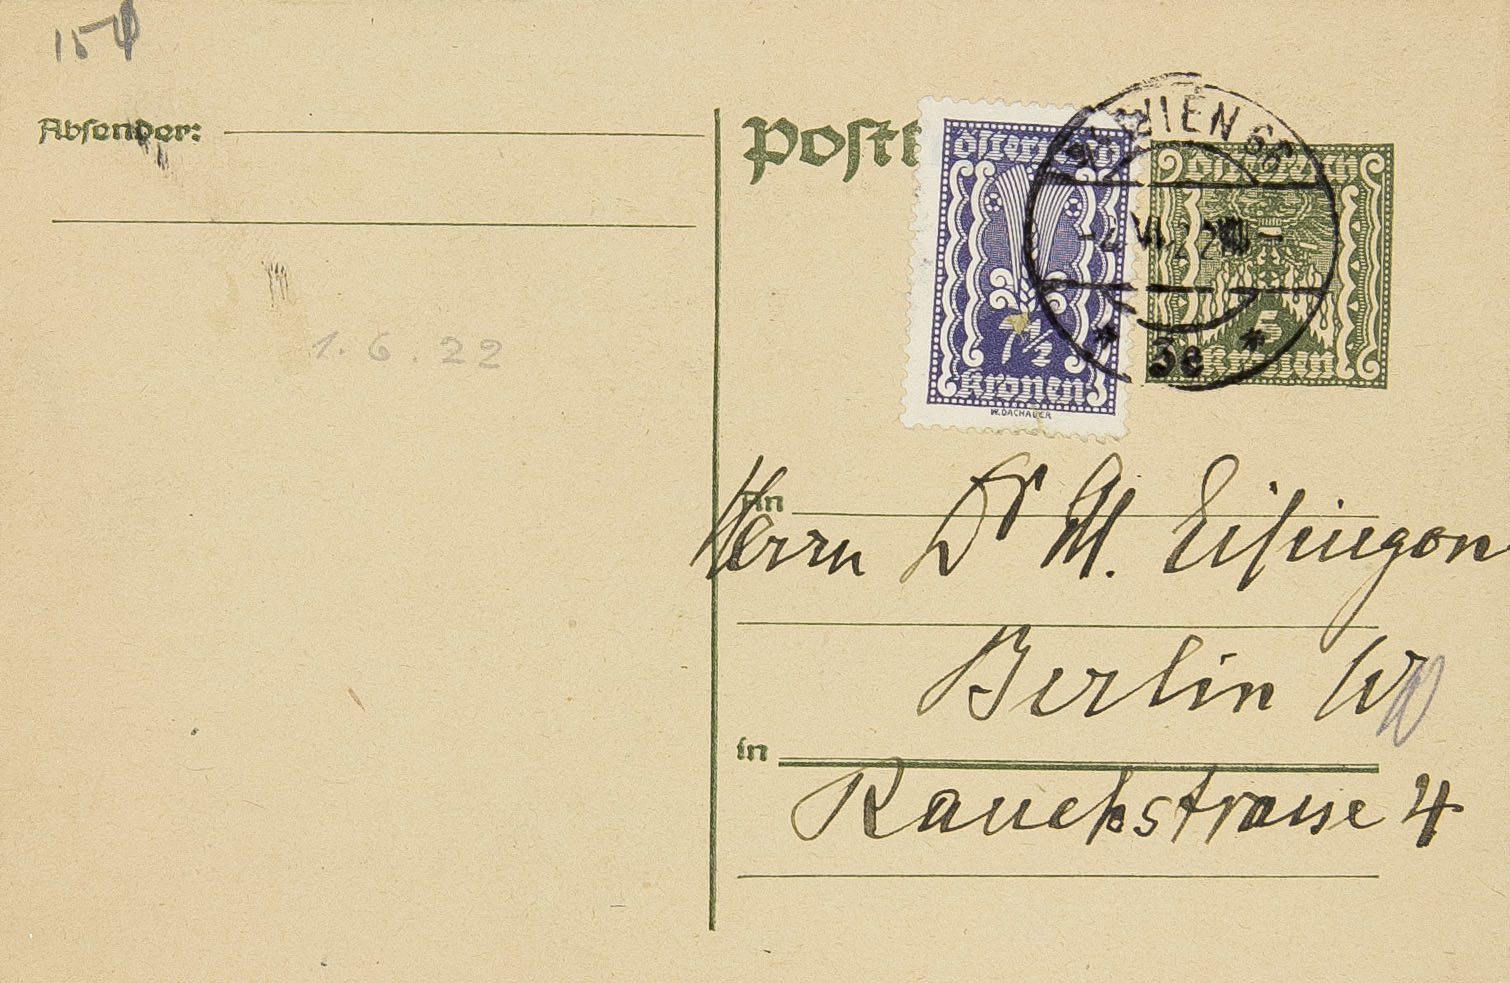 Absender:
Postk
Österreich
7½
Kronen
W. DACHAUER
WIEN 66
-2.VI.22
* 3e *
5
Kronen
1.6.22
An
Herrn Dr M. Eitingon
Berlin W
in
Rauchstrasse 4